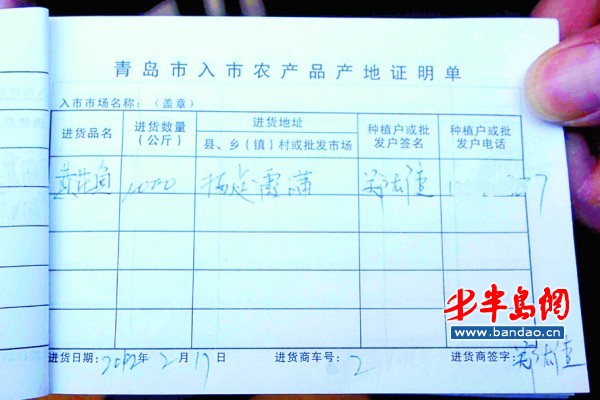 青岛市入市农产品产地证明单
入市市场名称：（盖章）
进货品名 进货数量（公斤） 进货地址 县、乡（镇）村或批发市场 种植户或批发户签名 种植户或批发户电话
黄花鱼 1000 福建霞浦
进货日期：2012年2月17日 进货商车号：2 进货商签字：
半岛网
www.bandao.cn